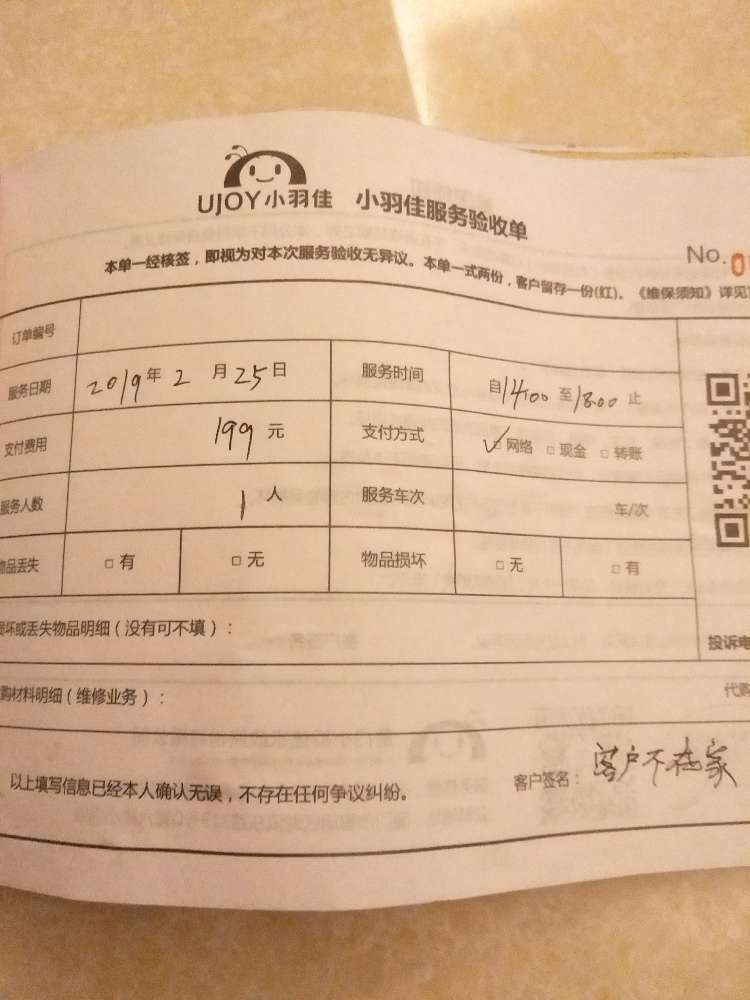 UJOY小羽佳 小羽佳服务验收单
No.0
本单一经核签，即视为对本次服务验收无异议。本单一式两份，客户留存一份(红)。《维保须知》详见
订单编号
服务日期 2019年 2 月 25日 服务时间 自14:00 至18:00 止
支付费用 199 元 支付方式 ☑网络 □现金 □转账
服务人数 1 人 服务车次 车/次
物品丢失 □有 □无 物品损坏 □无 □有
损坏或丢失物品明细（没有可不填）：
投诉电
购材料明细（维修业务）：
代购
以上填写信息已经本人确认无误，不存在任何争议纠纷。
客户签名：客户不在家